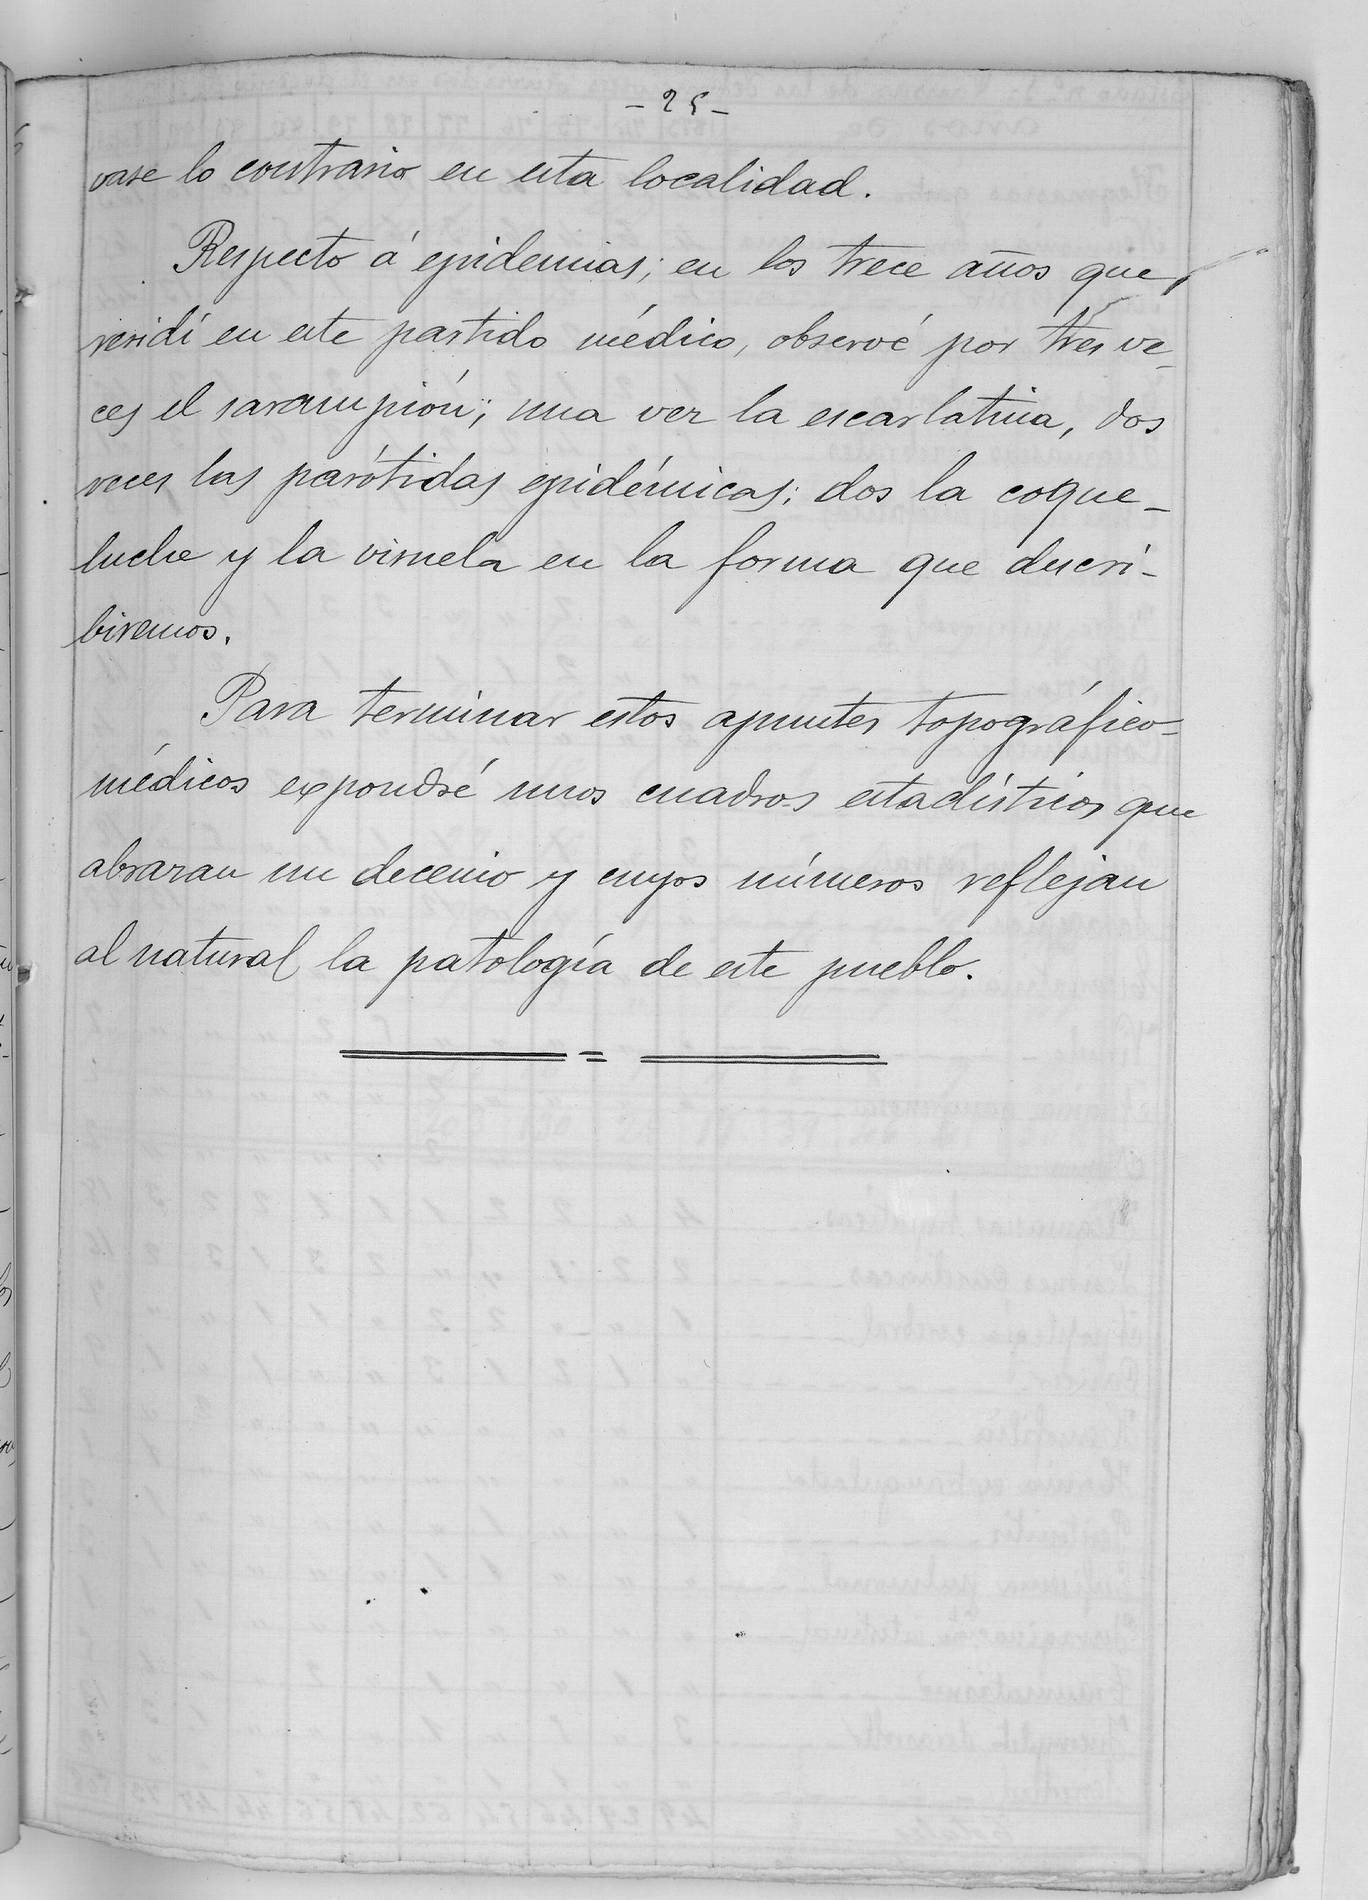 - 25 -
vase lo contrario en esta localidad.
Respecto á epidemias; en los trece años que
residí en este partido médico, observé por tres ve-
ces el sarampión; una vez la escarlatina, dos
veces las parótidas epidémicas; dos la coque-
luche y la viruela en la forma que descri-
biremos.
Para terminar estos apuntes topográfico-
médicos expondré unos cuadros estadísticos que
abrazan un decenio y cuyos números reflejan
al natural la patología de este pueblo.